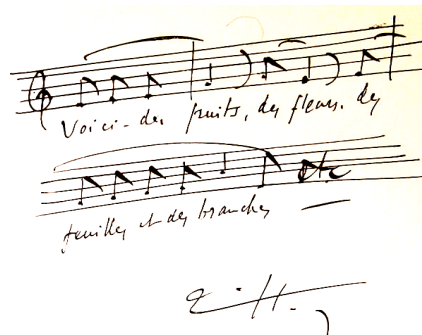 Voici-des fruits, des fleurs, des
feuilles et des branches etc